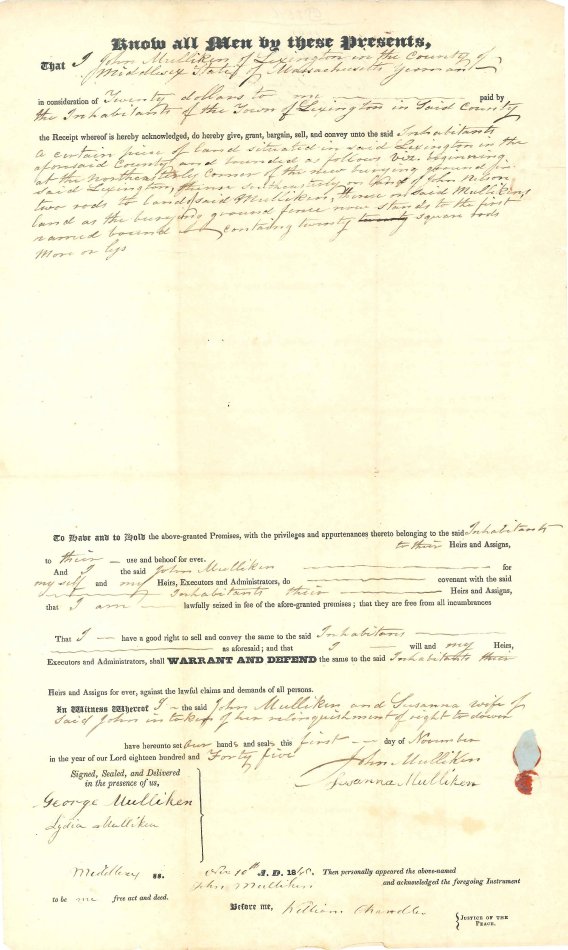 Know all Men by these Presents,
That I John Mulliken of Lexington in the County of
Middlesex State of Massachusetts Yeoman
in consideration of Twenty dollars to me paid by
the Inhabitants of the Town of Lexington in Said County
the Receipt whereof is hereby acknowledged, do hereby give, grant, bargain, sell, and convey unto the said Inhabitants
a certain piece of land situated in said Lexington in the
aforesaid County and bounded as follows viz. beginning
at the Northeasterly corner of the new burying ground in
said Lexington, thence on land of John Nelson
two rods to land of said Mulliken, thence on said Mulliken,s
land as the burying ground fence now stands to the first
named bound containg twenty twenty square rods
more or less
To Have and to Hold the above-granted Premises, with the privileges and appurtenances thereto belonging to the said Inhabitants
to their Heirs and Assigns,
to their use and behoof for ever.
And I the said John Mulliken for
my self and my Heirs, Executors and Administrators, do covenant with the said
Inhabitants their Heirs and Assigns,
that I am lawfully seized in fee of the afore-granted premises; that they are free from all incumbrances
That I have a good right to sell and convey the same to the said Inhabitans
as aforesaid; and that I will and my Heirs,
Executors and Administrators, shall WARRANT AND DEFEND the same to the said Inhabitants their
Heirs and Assigns for ever, against the lawful claims and demands of all persons.
In Witness Whereof I the said John Mulliken and Susanna wife of
said John in token of her relinquishment of right to dower
have hereunto set our hands and seals this first day of November
in the year of our Lord eighteen hundred and Forty five
Signed, Sealed, and Delivered
in the presence of us,
John Mulliken
Susanna Mulliken
George Mulliken
Lydia Mulliken
Middlesex ss. Nov 10th A. D. 1845. Then personally appeared the above-named
John Mulliken and acknowledged the foregoing Instrument
to be me free act and deed.
Before me, William Chandler
JUSTICE OF THE
PEACE.